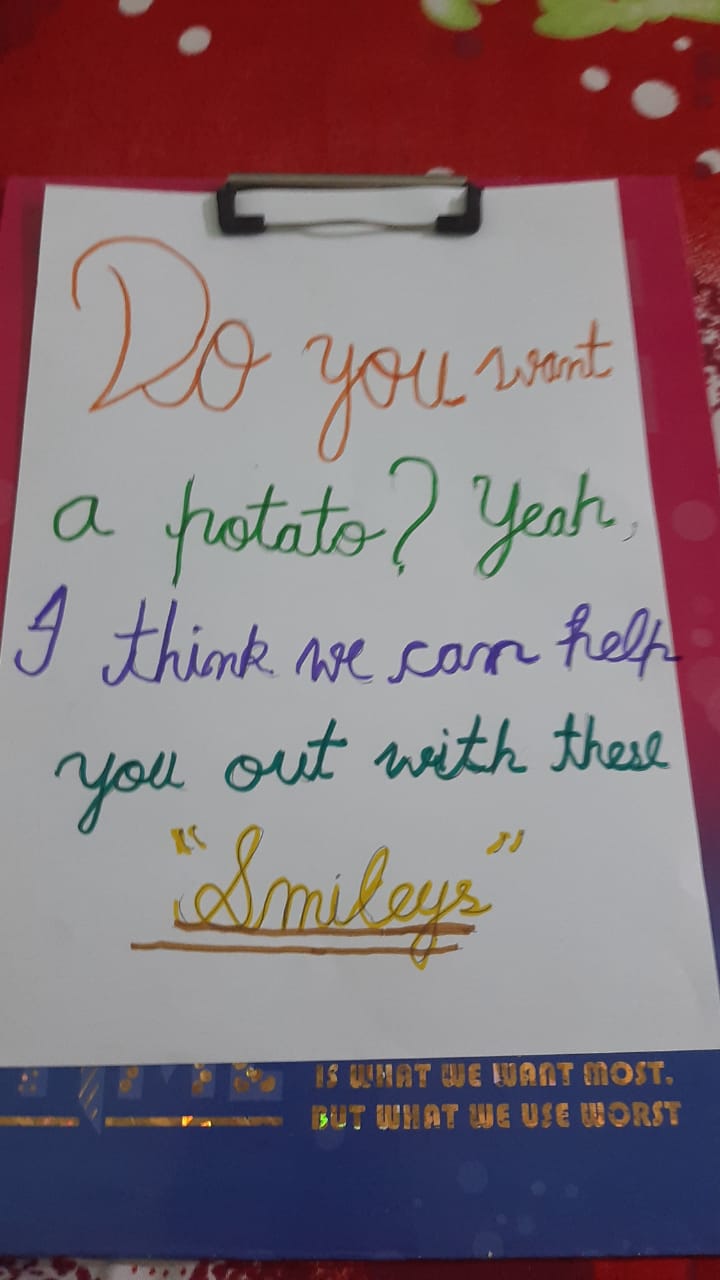 Do you want
a potato? Yeah,
I think we can help
you out with these
"Smileys"
IS WHAT WE WANT MOST.
BUT WHAT WE USE WORST